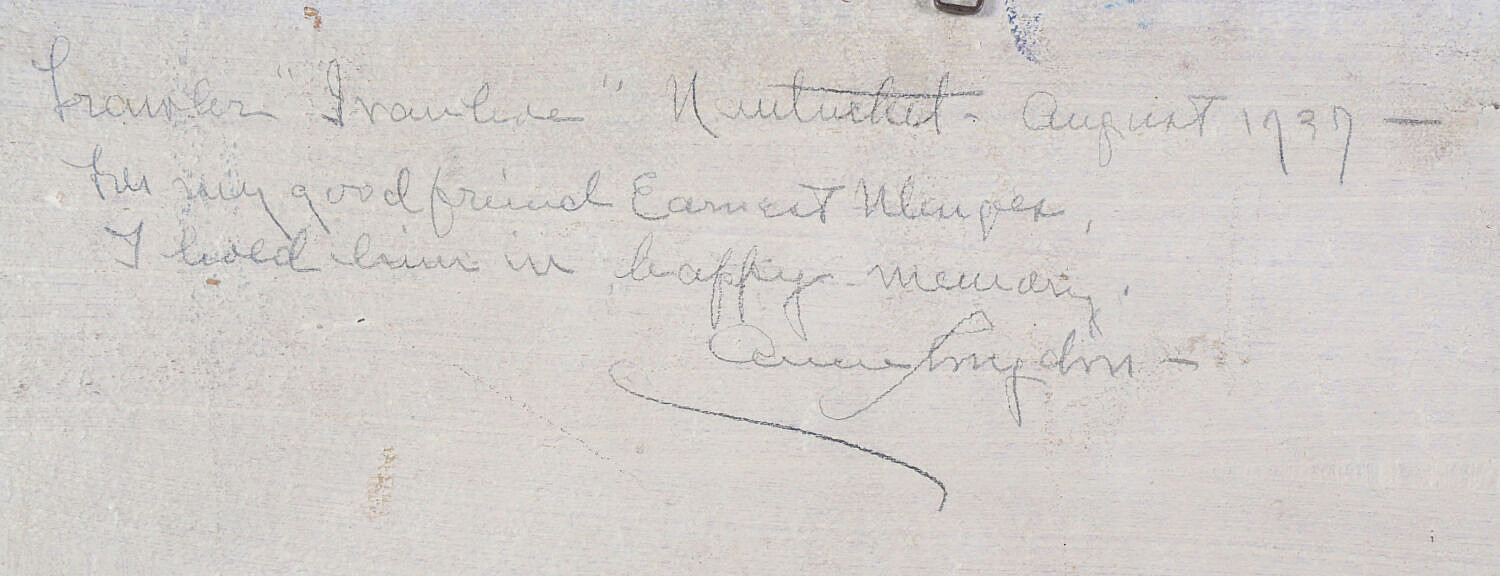 Trawler "Ivanhoe" Nantucket - August 1937 —
For my good friend Earnest
I hold him in happy memory.
Anne Congdon —